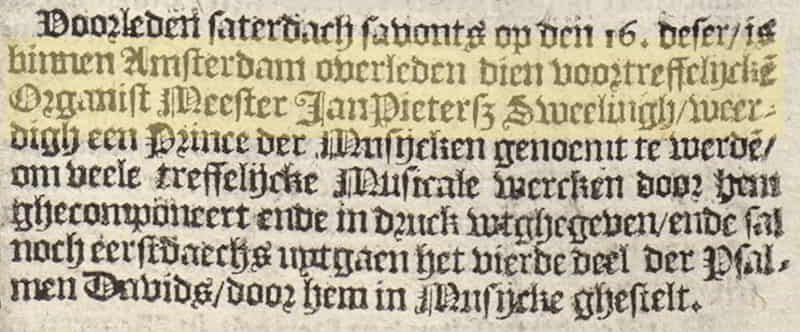 Voorleden saterdach savonts op den 16. deser/is
binnen Amsterdam overleden dien voortreffelijckẽ
Organist Meester Jan Pietersz Sweelingh/weer-
digh een Prince der Musijcken genoemt te werdẽ/
om veele treffelijcke Musicale wercken door hem
ghecomponeert ende in druck wtghegeven/ende sal
noch eerstdaechs uytgaen het vierde deel der Psal-
men Davids/door hem in Musijcke ghestelt.